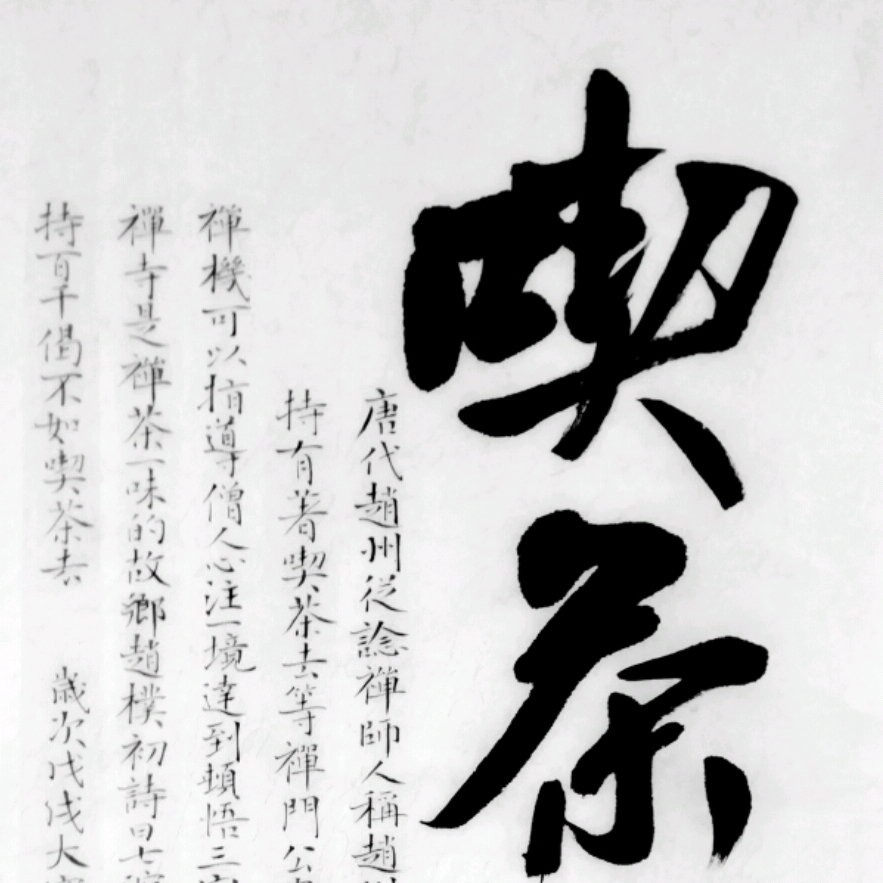 喫茶
唐代趙州從諗禪師人稱趙
持有著喫茶去等禪門公
禪機可以指導僧人心注一境達到頓悟三
禪寺是禪茶一味的故鄉趙樸初詩曰七
持百千偈不如喫茶去 歲次戊戌大